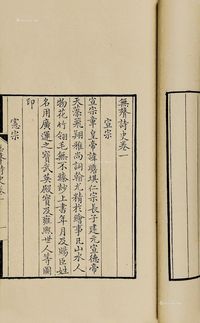 無聲詩史卷一
宣宗
宣宗章皇帝諱瞻基仁宗長子建元宣德帝
天藻飛翔雅尚詞翰尤精於繪事凡山水人
物花竹翎毛無不臻妙上書年月及賜臣姓
名用廣運之寶武英殿寶及雍熙世人等圖
印
憲宗